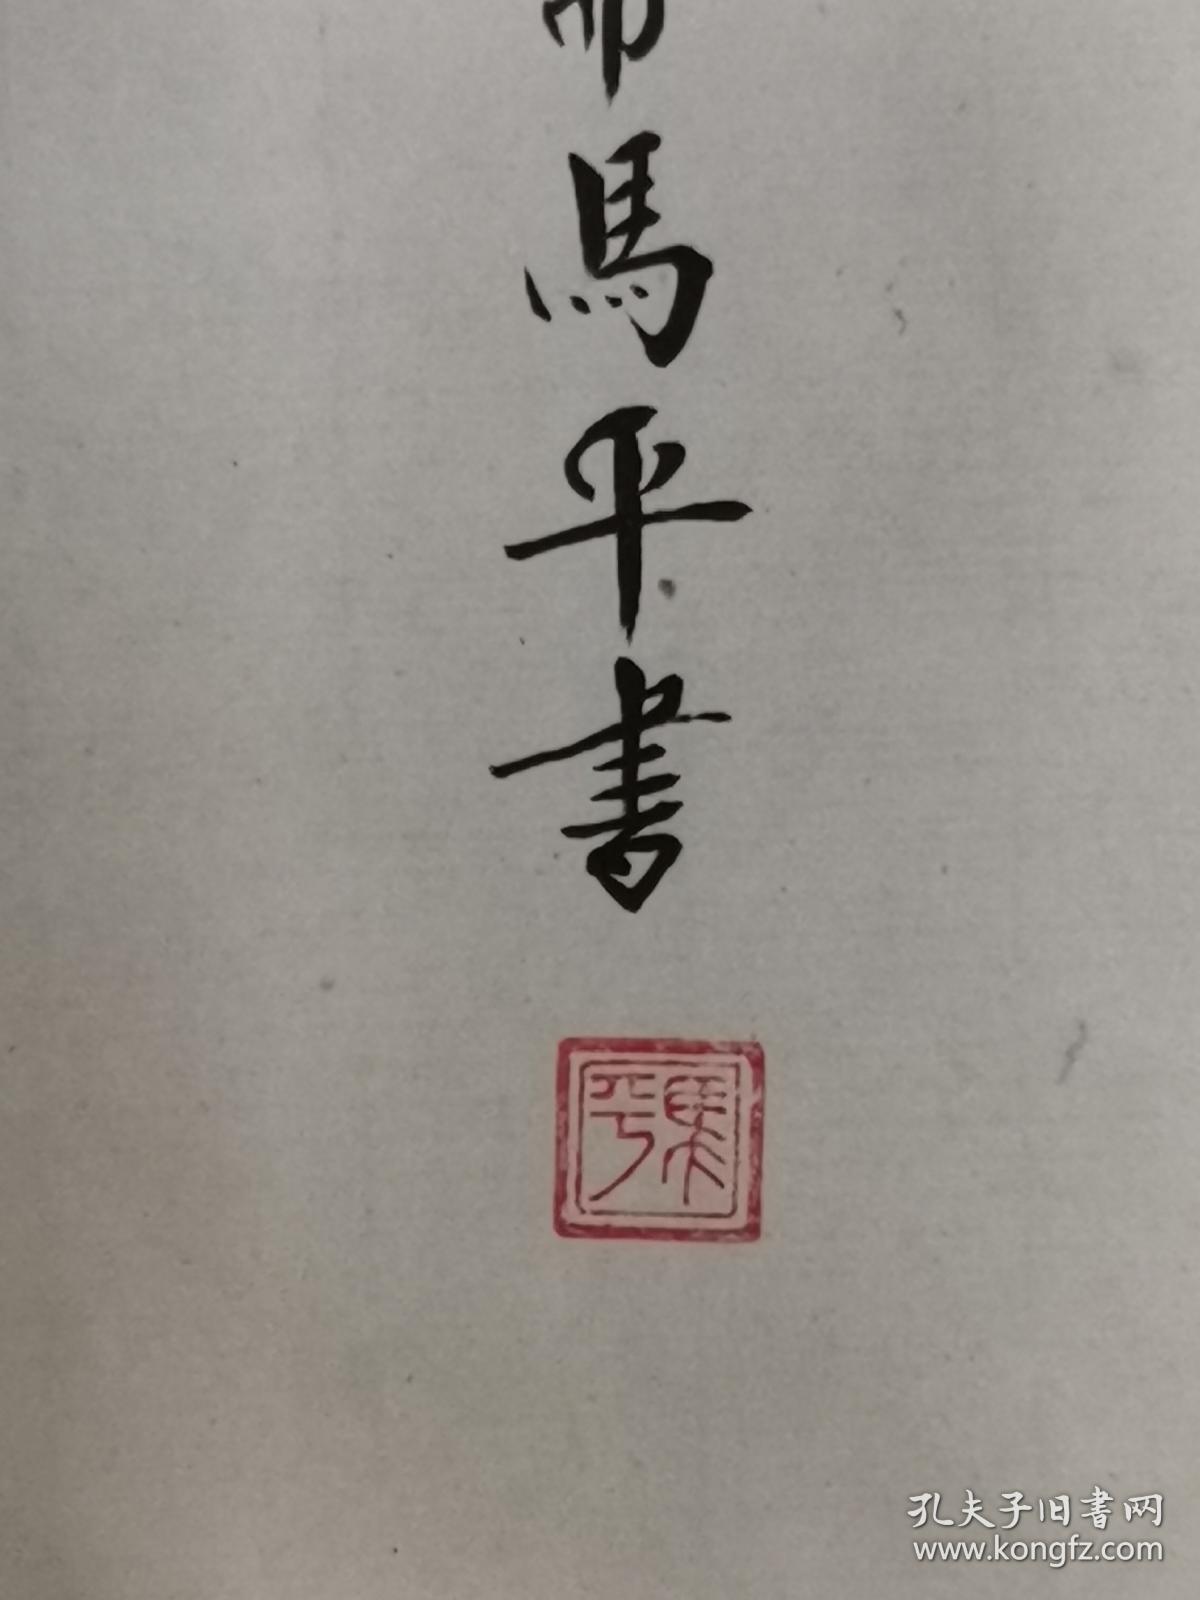 馬平書
馬平
孔夫子旧书网
www.kongfz.com